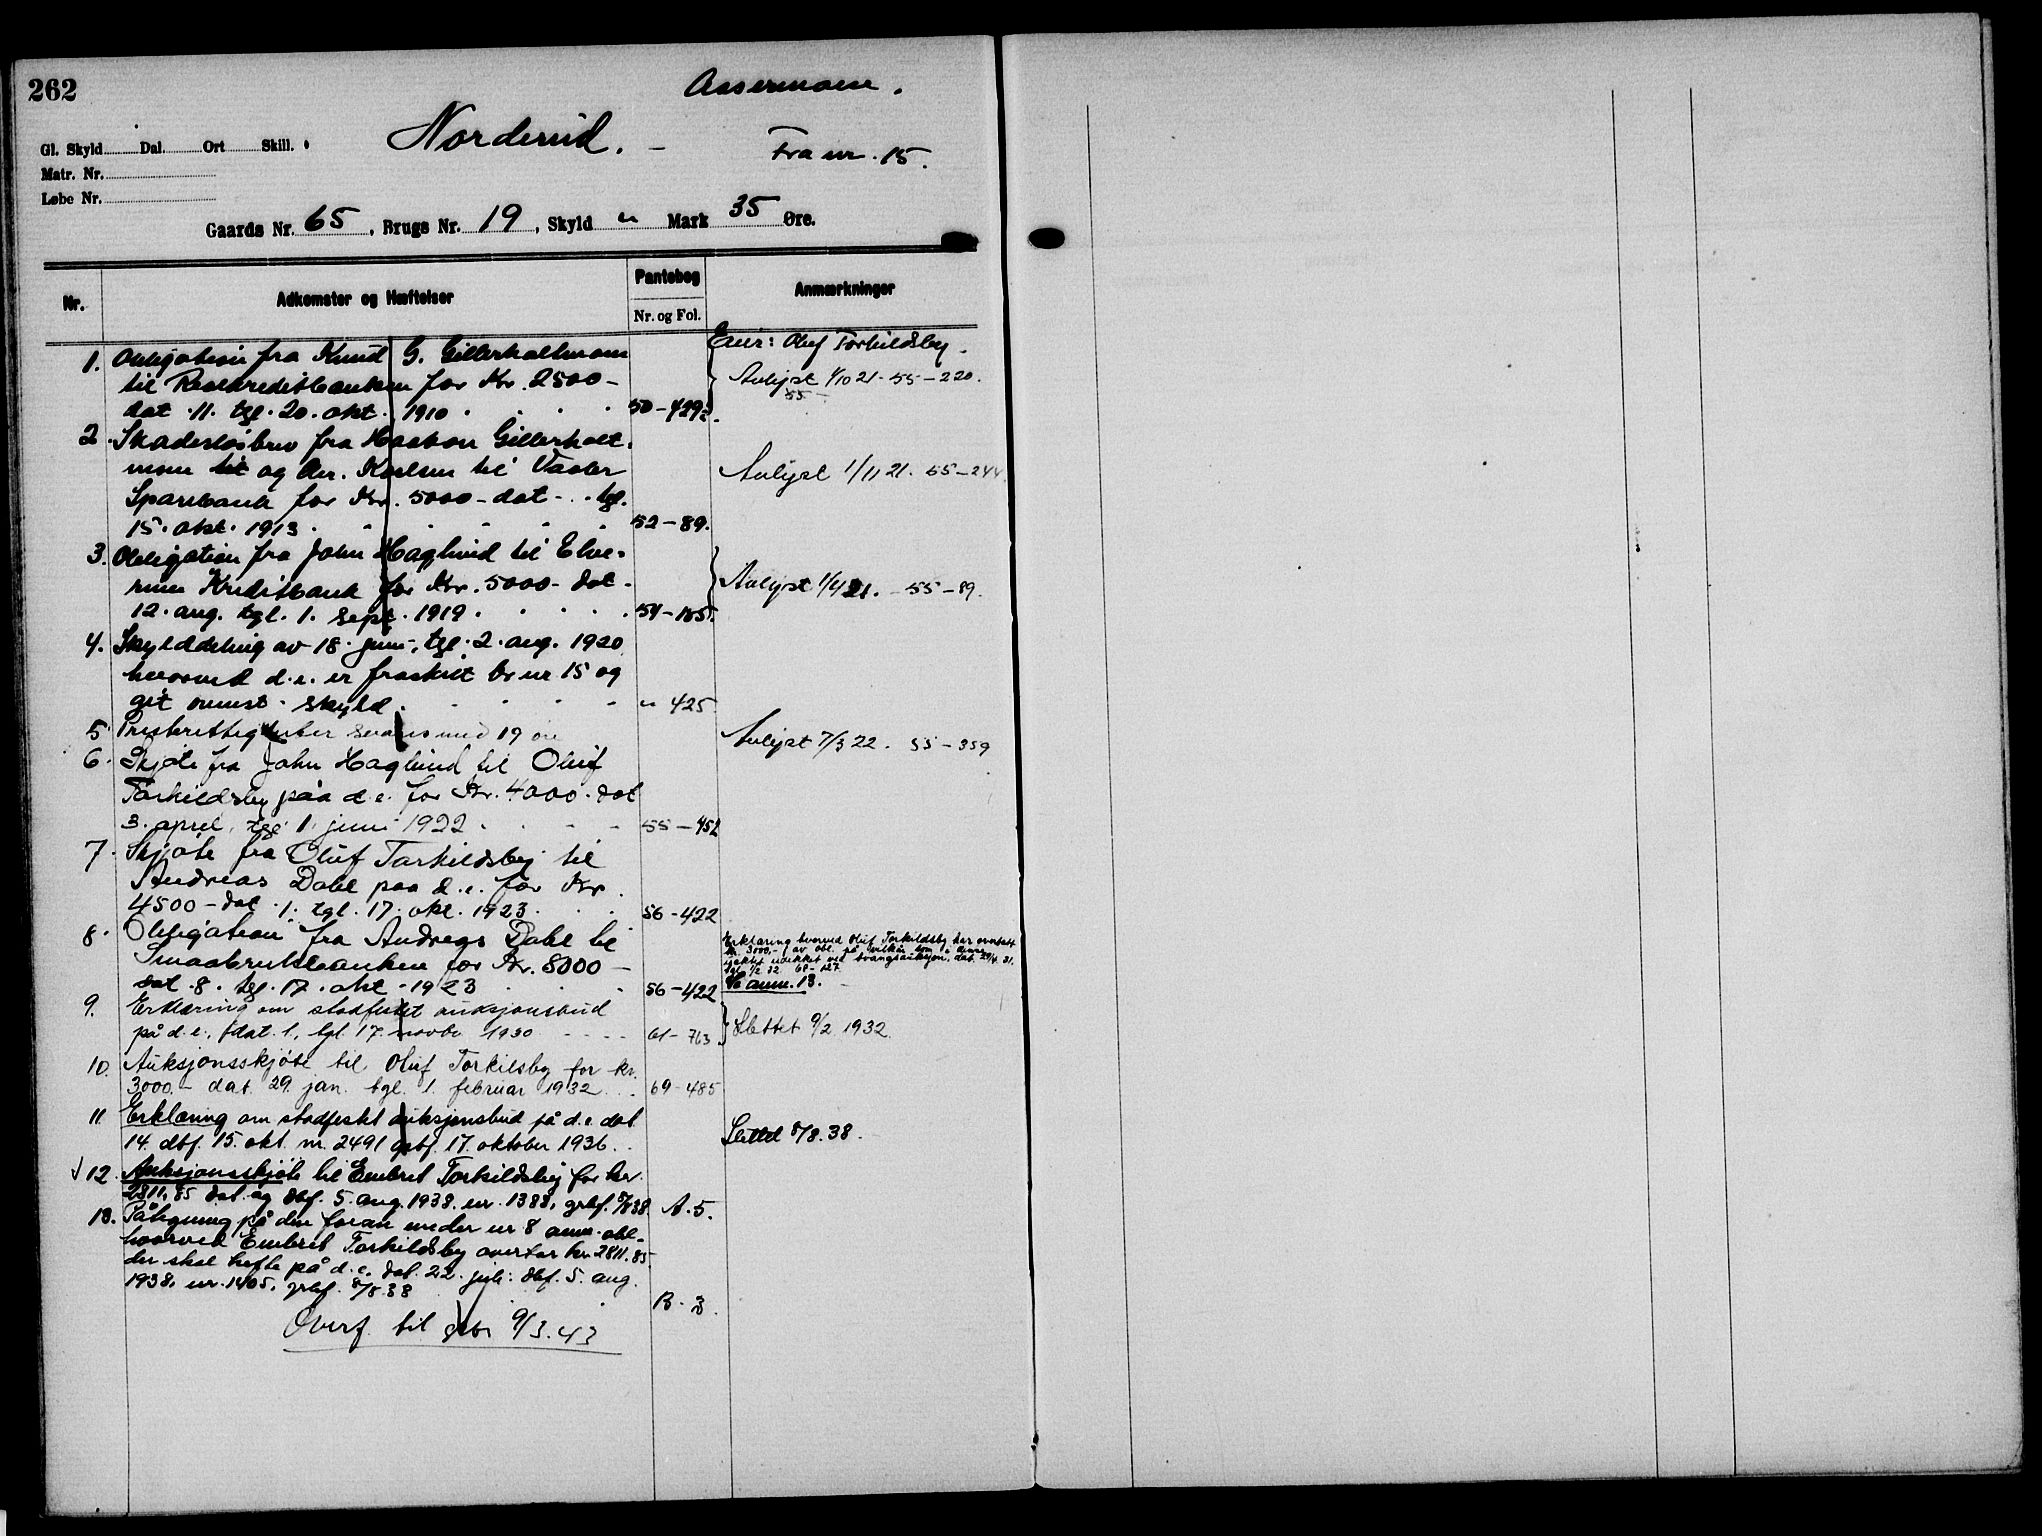 262
Aasermoen.
Norderud. –
Fra nr. 15.
Gl. Skyld Dal Ort Skill.
Matr. Nr.
Løbe Nr.
Gaards Nr. 65, Brugs Nr. 19, Skyld " Mark 35 Øre.
Nr. Adkomster og Hæftelser Pantebog Nr. og Fol. Anmærkninger
Eier: Oluf Torkildsby.
1. Obligation fra Knud G. Gillerholtmoen
til Realkreditbanken for Kr. 2500 –
dat. 11. tgl. 20. okt. 1910 50–429
Avlyst 1/10 21. 55–220.
55
2. Skadesløsbrev fra Haakon Gillerholt-
moen og Kr. Karlsen til Vaaler
Sparebank for Kr. 5000 – dat – tgl.
15. okt. 1913 52–89.
Avlyst 1/11 21. 55–244
3. Obligation fra John Haglund til Elve-
rum Kreditbank for Kr. 5000 – dat.
12. aug. tgl. 1. sept. 1919 54–165.
Avlyst 1/4 21. – 55–89.
4. Skylddeling av 18. juni, tgl. 2. aug. 1920
hvorved d.e. er fraskilt br nr 15 og
git ovennt. skyld. " 425
5. svares med 19 øre
Avlyst 7/3 22. 55–359
6. Skjøte fra John Haglund til Oluf
Torkildsby paa d.e. for Kr. 4000. dat
3. april, tgl 1. juni 1922 55–452
7. Skjøte fra Oluf Torkildsby til
Andreas Dahl paa d.e. for Kr.
4500 – dat. 1. tgl. 17. okt. 1923. 56–422
8. Obligation fra Andreas Dahl til
Smaabrukbanken for Kr. 8000 –
dat. 8. tgl. 17. okt. 1923 56–422
Erklæring hvorved Oluf Torkildsby har overtatt
kr. 3000,– av obl. på vilkår som i denne
ved tvangsauksjon, dat. 29/4. 31.
tgl. 1/2 32. 69–127.
Se anm. 13.
9. Erklæring om stadfestet auksjonsbud
på d.e., dat. 1., tgl 17. novbr 1930 61–763
Slettet 9/2 1932.
10. Auksjonsskjøte til Oluf Torkilsby for kr.
3000.– dat. 29. jan. tgl. 1. februar 1932 69–485
11. Erklæring om stadfestet auksjonsbud på d.e. dat
14. dbf. 15. okt. nr. 2491 gbf. 17. oktober 1936.
Slettet 8/8. 38.
12. Auksjonsskjøte til Embret Torkildsby for kr.
2811,85 dat. og dbf. 5. aug. 1938. nr. 1388, grbf. 8/8 38. A. 5.
13. Påtegning på den foran under nr 8 anm. obl.
hvorved Embret Torkildsby overtar kr. 2811.85
der skal hefte på d.e. dat. 22. juli: dbf. 5. aug.
1938. nr. 1405, grbf. 8/8 38 B. 3.
Overf. til gbr 9/3. 43